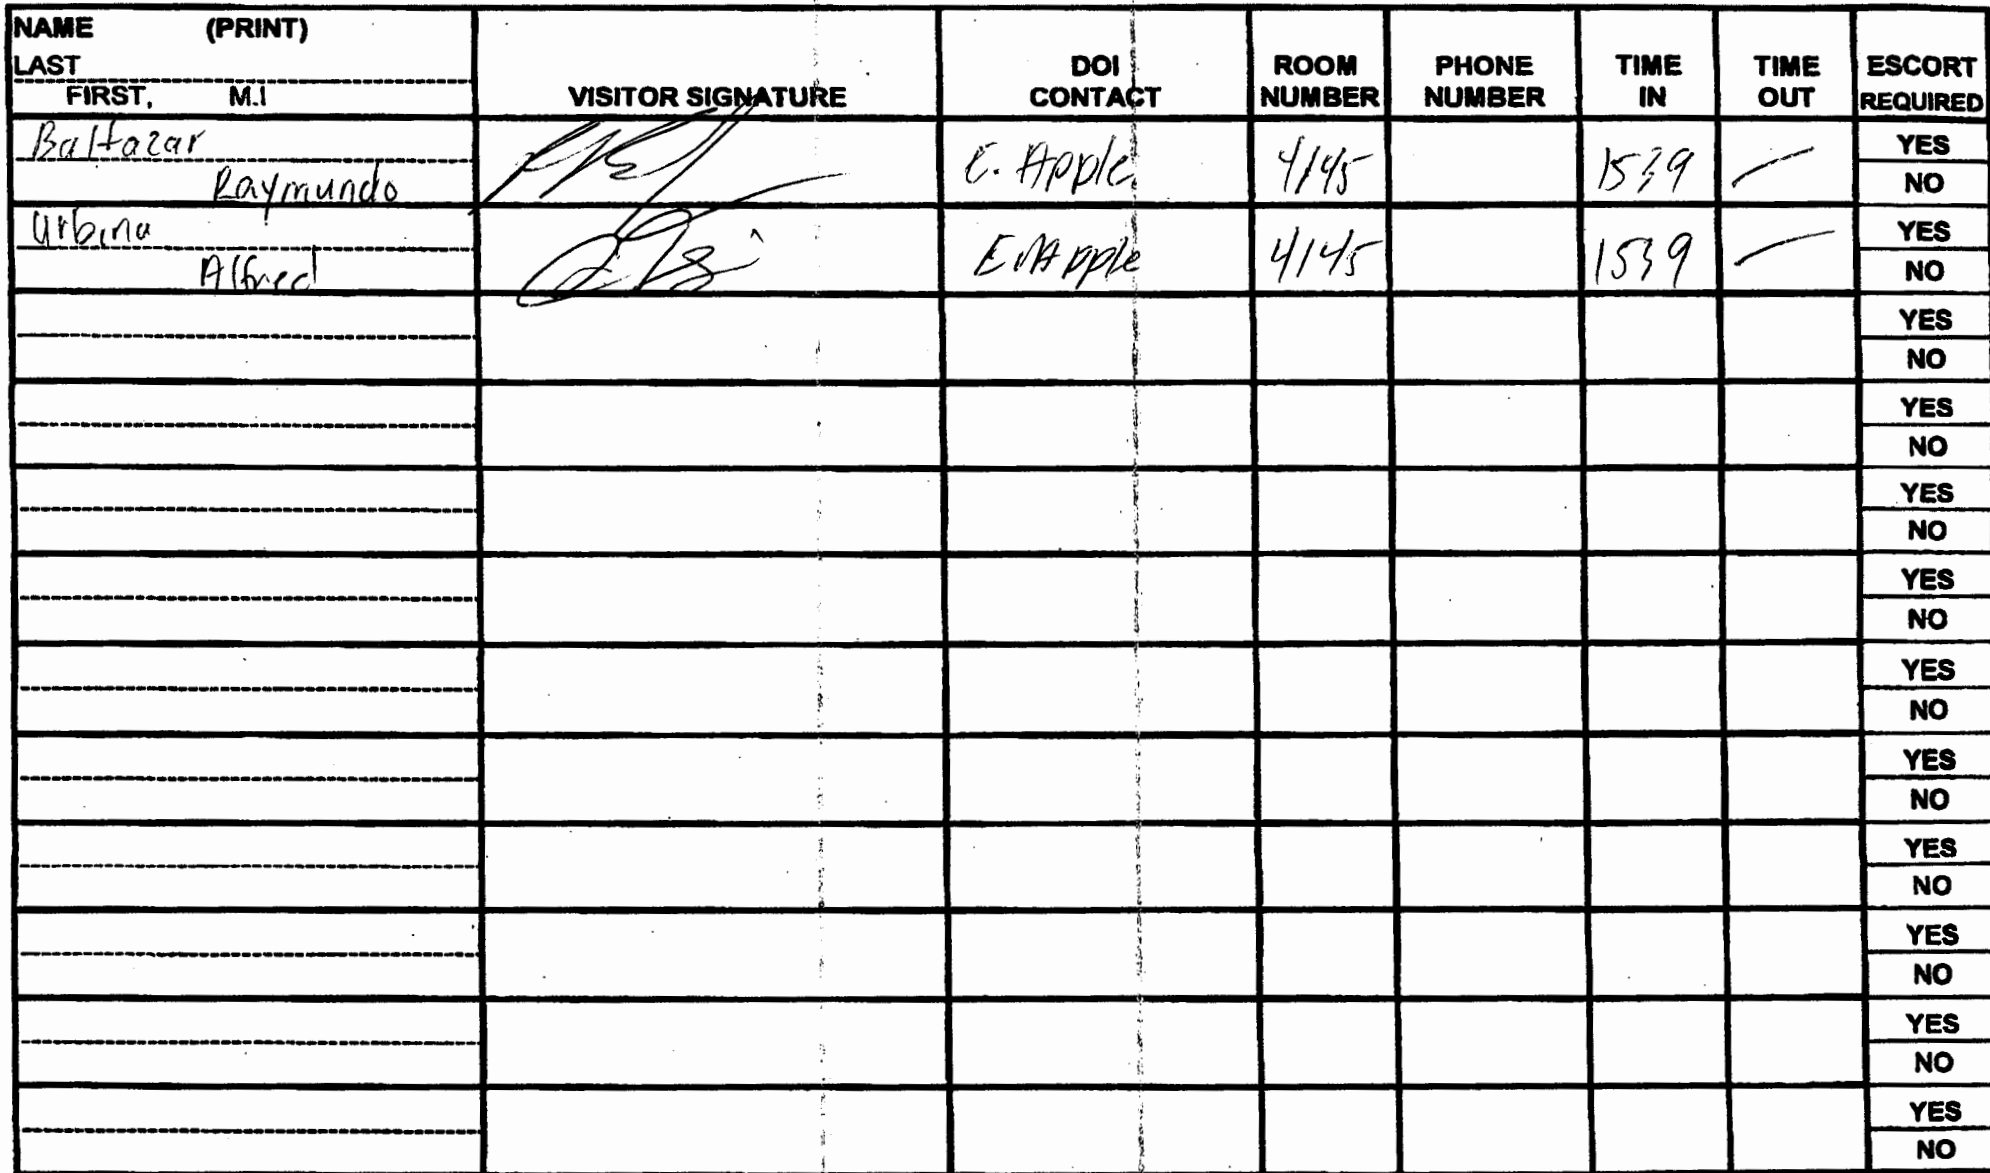 NAME (PRINT)
LAST
FIRST, M.I
VISITOR SIGNATURE
DOI
CONTACT
ROOM
NUMBER
PHONE
NUMBER
TIME
IN
TIME
OUT
ESCORT
REQUIRED
Baltazar
Raymundo
E. Apple
4145
1539
—
YES
NO
Urbina
Alfred
E. Apple
4145
1539
—
YES
NO
YES
NO
YES
NO
YES
NO
YES
NO
YES
NO
YES
NO
YES
NO
YES
NO
YES
NO
YES
NO